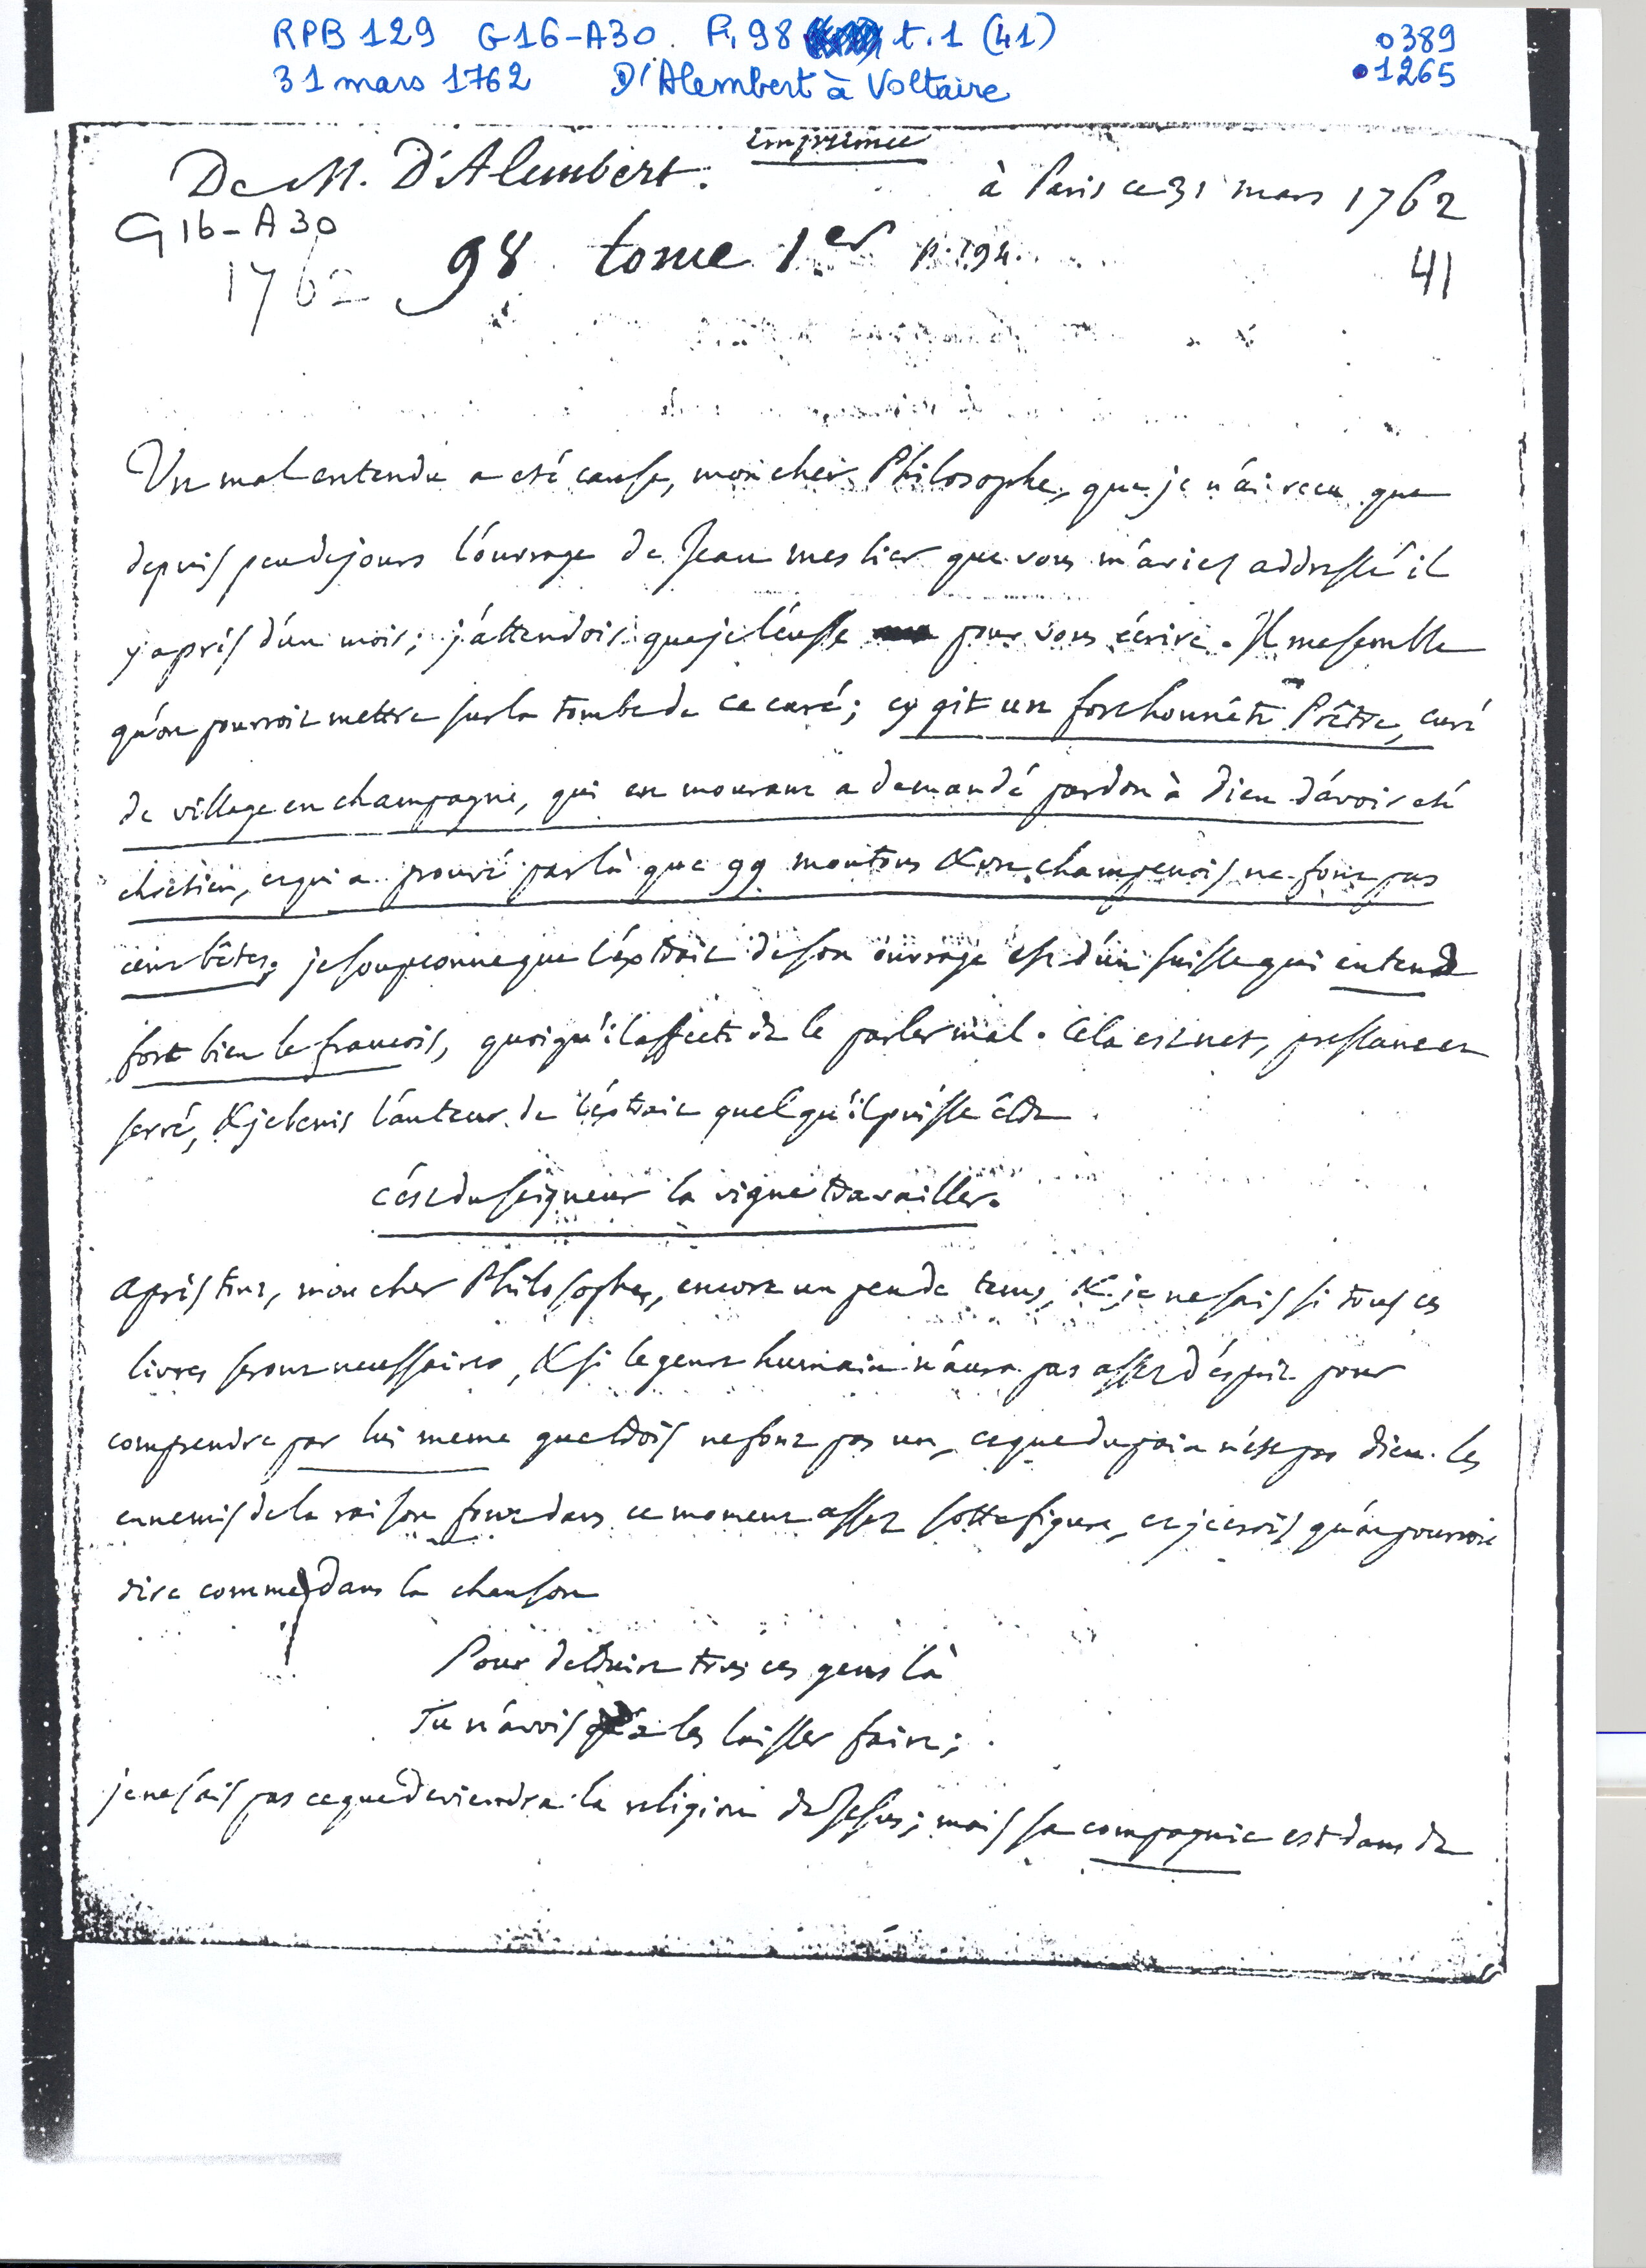 RPB 129 G16-A30. P. 98 t.1 (41)
0389
31 mars 1762 D'Alembert à Voltaire
01265
imprimée
De M. D'Alembert.
à Paris ce 31 mars 1762
G16-A30
1762 98 tome 1er p. 194.
41
Un malentendu a eté cause, mon cher Philosophe, que je n'ai recu que
depuis peu de jours l'ouvrage de Jean meslier que vous m'aviez addressé il
y a près d'un mois; j'attendois que je l'eusse pour vous écrire. Il me semble
qu'on pourroit mettre sur la tombe de ce curé; cy git un fort honnête Prêtre, curé
de village en champagne, qui en mourant a demandé pardon à Dieu d'avoir eté
chretien, et qui a prouvé par là que 99 moutons & un champenois ne font pas
cent bêtes; je soupconne que l'extrait de son ouvrage est d'un suisse qui entend
fort bien le francois, quoiqu'il affecte de le parler mal. Cela est net, pressant et
serré, & je benis l'auteur de l'extrait quel qu'il puisse être.
c'est du seigneur la vigne travailler.
après tout, mon cher Philosophe, encore un peu de tems, & je ne sais si tous ces
livres seront necessaires, & si le genre humain n'aura pas assez d'esprit pour
comprendre par lui meme que trois ne font pas un, et que du pain n'est pas Dieu. les
ennemis de la raison font dans ce moment assez sotte figure, et je crois qu'on pourroit
dire comme dans la chanson
Pour detruire tous ces gens là
Tu n'avois qu'à les laisser faire;
je ne sais pas ce que deviendra la religion de Jesus; mais sa compagnie est dans de